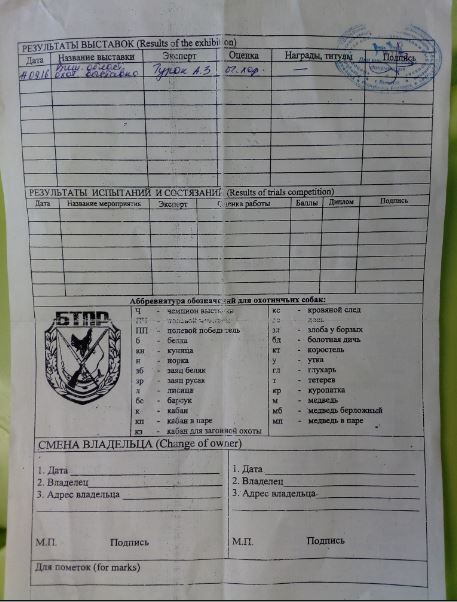 РЕЗУЛЬТАТЫ ВЫСТАВОК (Results of the exhibition)
Дата Название выставки Эксперт Оценка Награды, титулы Подпись
обл. выставка Турок А.З. от. хор. —
РЕЗУЛЬТАТЫ ИСПЫТАНИЙ И СОСТЯЗАНИЙ (Results of trials competition)
Дата Название мероприятия Эксперт Оценка работы Баллы Диплом Подпись
Аббревиатура обозначений для охотничьих собак:
БТПР
Ч - чемпион выставки
ПЧ - полевой чемпион
ПП - полевой победитель
б - белка
кн - куница
н - норка
зб - заяц беляк
зр - заяц русак
л - лисица
бс - барсук
к - кабан
кп - кабан в паре
кз - кабан для загонной охоты
кс - кровяной след
зл - злоба у борзых
бд - болотная дичь
кт - коростель
у - утка
гл - глухарь
т - тетерев
кр - куропатка
м - медведь
мб - медведь берложный
мп - медведь в паре
СМЕНА ВЛАДЕЛЬЦА (Change of owner)
1. Дата 1. Дата
2. Владелец 2. Владелец
3. Адрес владельца 3. Адрес владельца
М.П. Подпись М.П. Подпись
Для пометок (for marks)